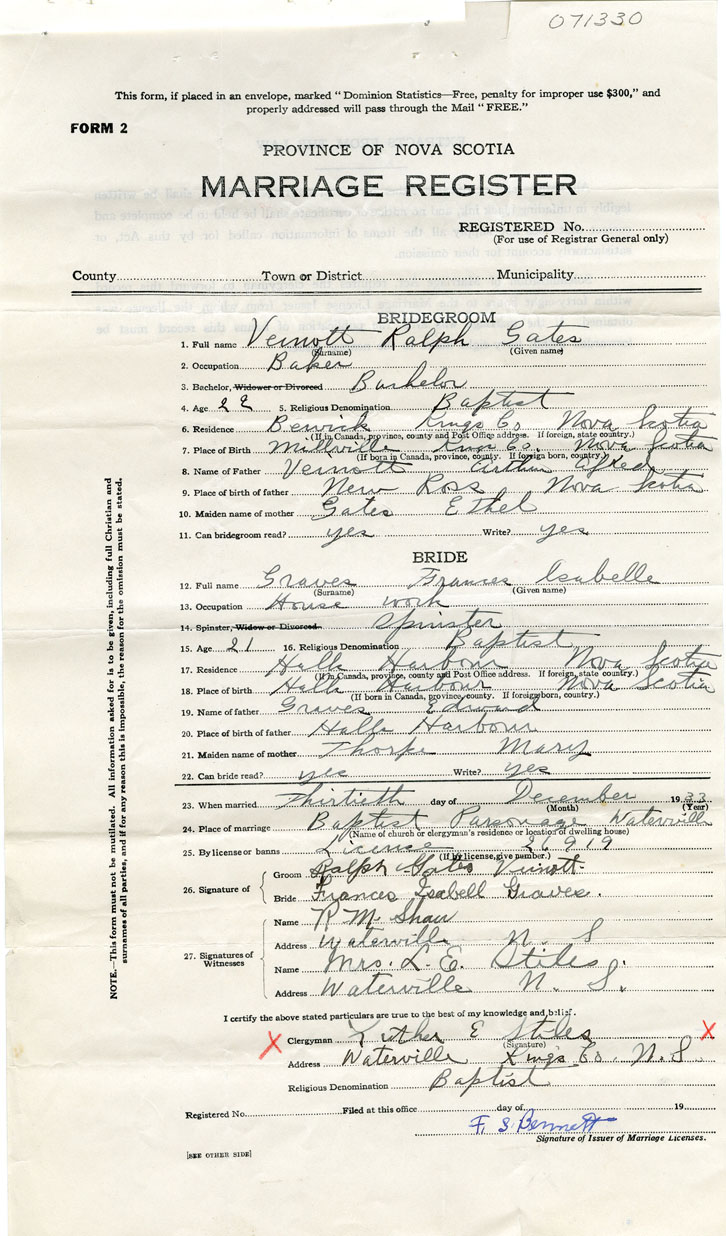 071330
This form, if placed in an envelope, marked "Dominion Statistics—Free, penalty for improper use $300," and
properly addressed will pass through the Mail "FREE."
FORM 2
PROVINCE OF NOVA SCOTIA
MARRIAGE REGISTER
REGISTERED No.
(For use of Registrar General only)
County Town or District Municipality
BRIDEGROOM
1. Full name Vernott Ralph Gates
(Surname) (Given name)
2. Occupation Baker
3. Bachelor, Widower or Divorced Bachelor
4. Age 22 5. Religious Denomination Baptist
6. Residence Berwick Kings Co Nova Scotia
(If in Canada, province, county and Post Office address. If foreign, state country.)
7. Place of Birth Millville Kings Co. Nova Scotia
(If born in Canada, province, county. If foreign born, country.)
8. Name of Father Vernott Arthur Alfred
9. Place of birth of father New Ross Nova Scotia
10. Maiden name of mother Gates Ethel
11. Can bridegroom read? yes Write? yes
BRIDE
12. Full name Graves Frances Isabelle
(Surname) (Given name)
13. Occupation House work
14. Spinster, Widow or Divorced Spinster
15. Age 21 16. Religious Denomination Baptist
17. Residence Halls Harbour Nova Scotia
(If in Canada, province, county and Post Office address. If foreign, state country.)
18. Place of birth Halls Harbour Nova Scotia
(If born in Canada, province, county. If foreign born, country.)
19. Name of father Graves Edward
20. Place of birth of father Halls Harbour
21. Maiden name of mother Thorpe Mary
22. Can bride read? yes Write? yes
23. When married Thirtieth day of December 1933
(Month) (Year)
24. Place of marriage Baptist Parsonage Waterville
(Name of church or clergyman's residence or location of dwelling house)
25. By license or banns License 26919
(If by license, give number.)
26. Signature of
Groom Ralph Gates Vernott
Bride Frances Isabell Graves.
27. Signatures of Witnesses
Name R M Shaw
Address Waterville N. S
Name Mrs. L. E. Stiles.
Address Waterville N. S.
I certify the above stated particulars are true to the best of my knowledge and belief.
X Clergyman Luther E Stiles X
(Signature)
Address Waterville Kings Co. N. S
Religious Denomination Baptist
Registered No. Filed at this office day of 19
F. S. Bennett
Signature of Issuer of Marriage Licenses.
[SEE OTHER SIDE]
NOTE.—This form must not be mutilated. All information asked for is to be given, including full Christian and
surnames of all parties, and if for any reason this is impossible, the reason for the omission must be stated.